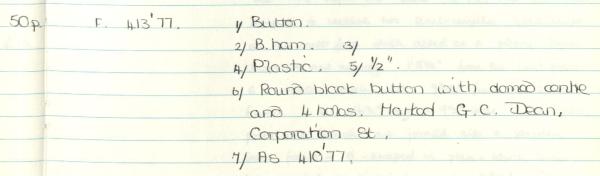 50p. F. 413'77. 1/ Button.
2/ B.ham. 3/
4/ Plastic. 5/ 1/2".
6/ Round black button with domed centre
and 4 holes. Marked G.C. Dean,
Corporation St.
7/ As 410'77.